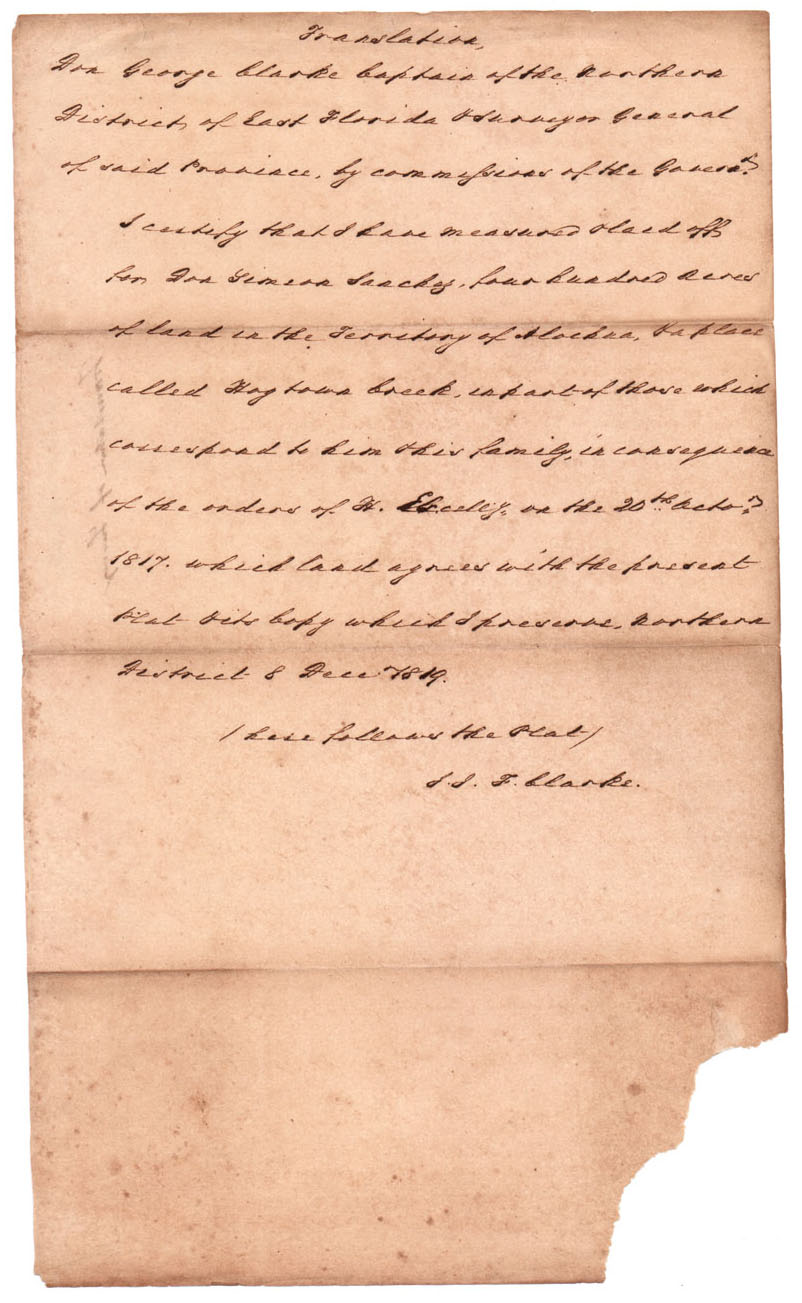 Translation,
Don George Clarke Captain of the Northern
District, of East Florida & Surveyor General
of said Province, by commissions of the Governt.
I certify that I have measured & laed off
for Don Simeon Sanchez, four hundred Acres
of land in the Territory of Alochua, & a place
called Hogtown Creek, in part of those which
correspond to him & his family, in consequence
of the orders of H. Excelly. on the 20th Octor.
1817. which land agrees with the present
Plat & its Copy which I preserve, Northern
District 8 Decer 1819.
(here follows the Plat)
F. Clarke.